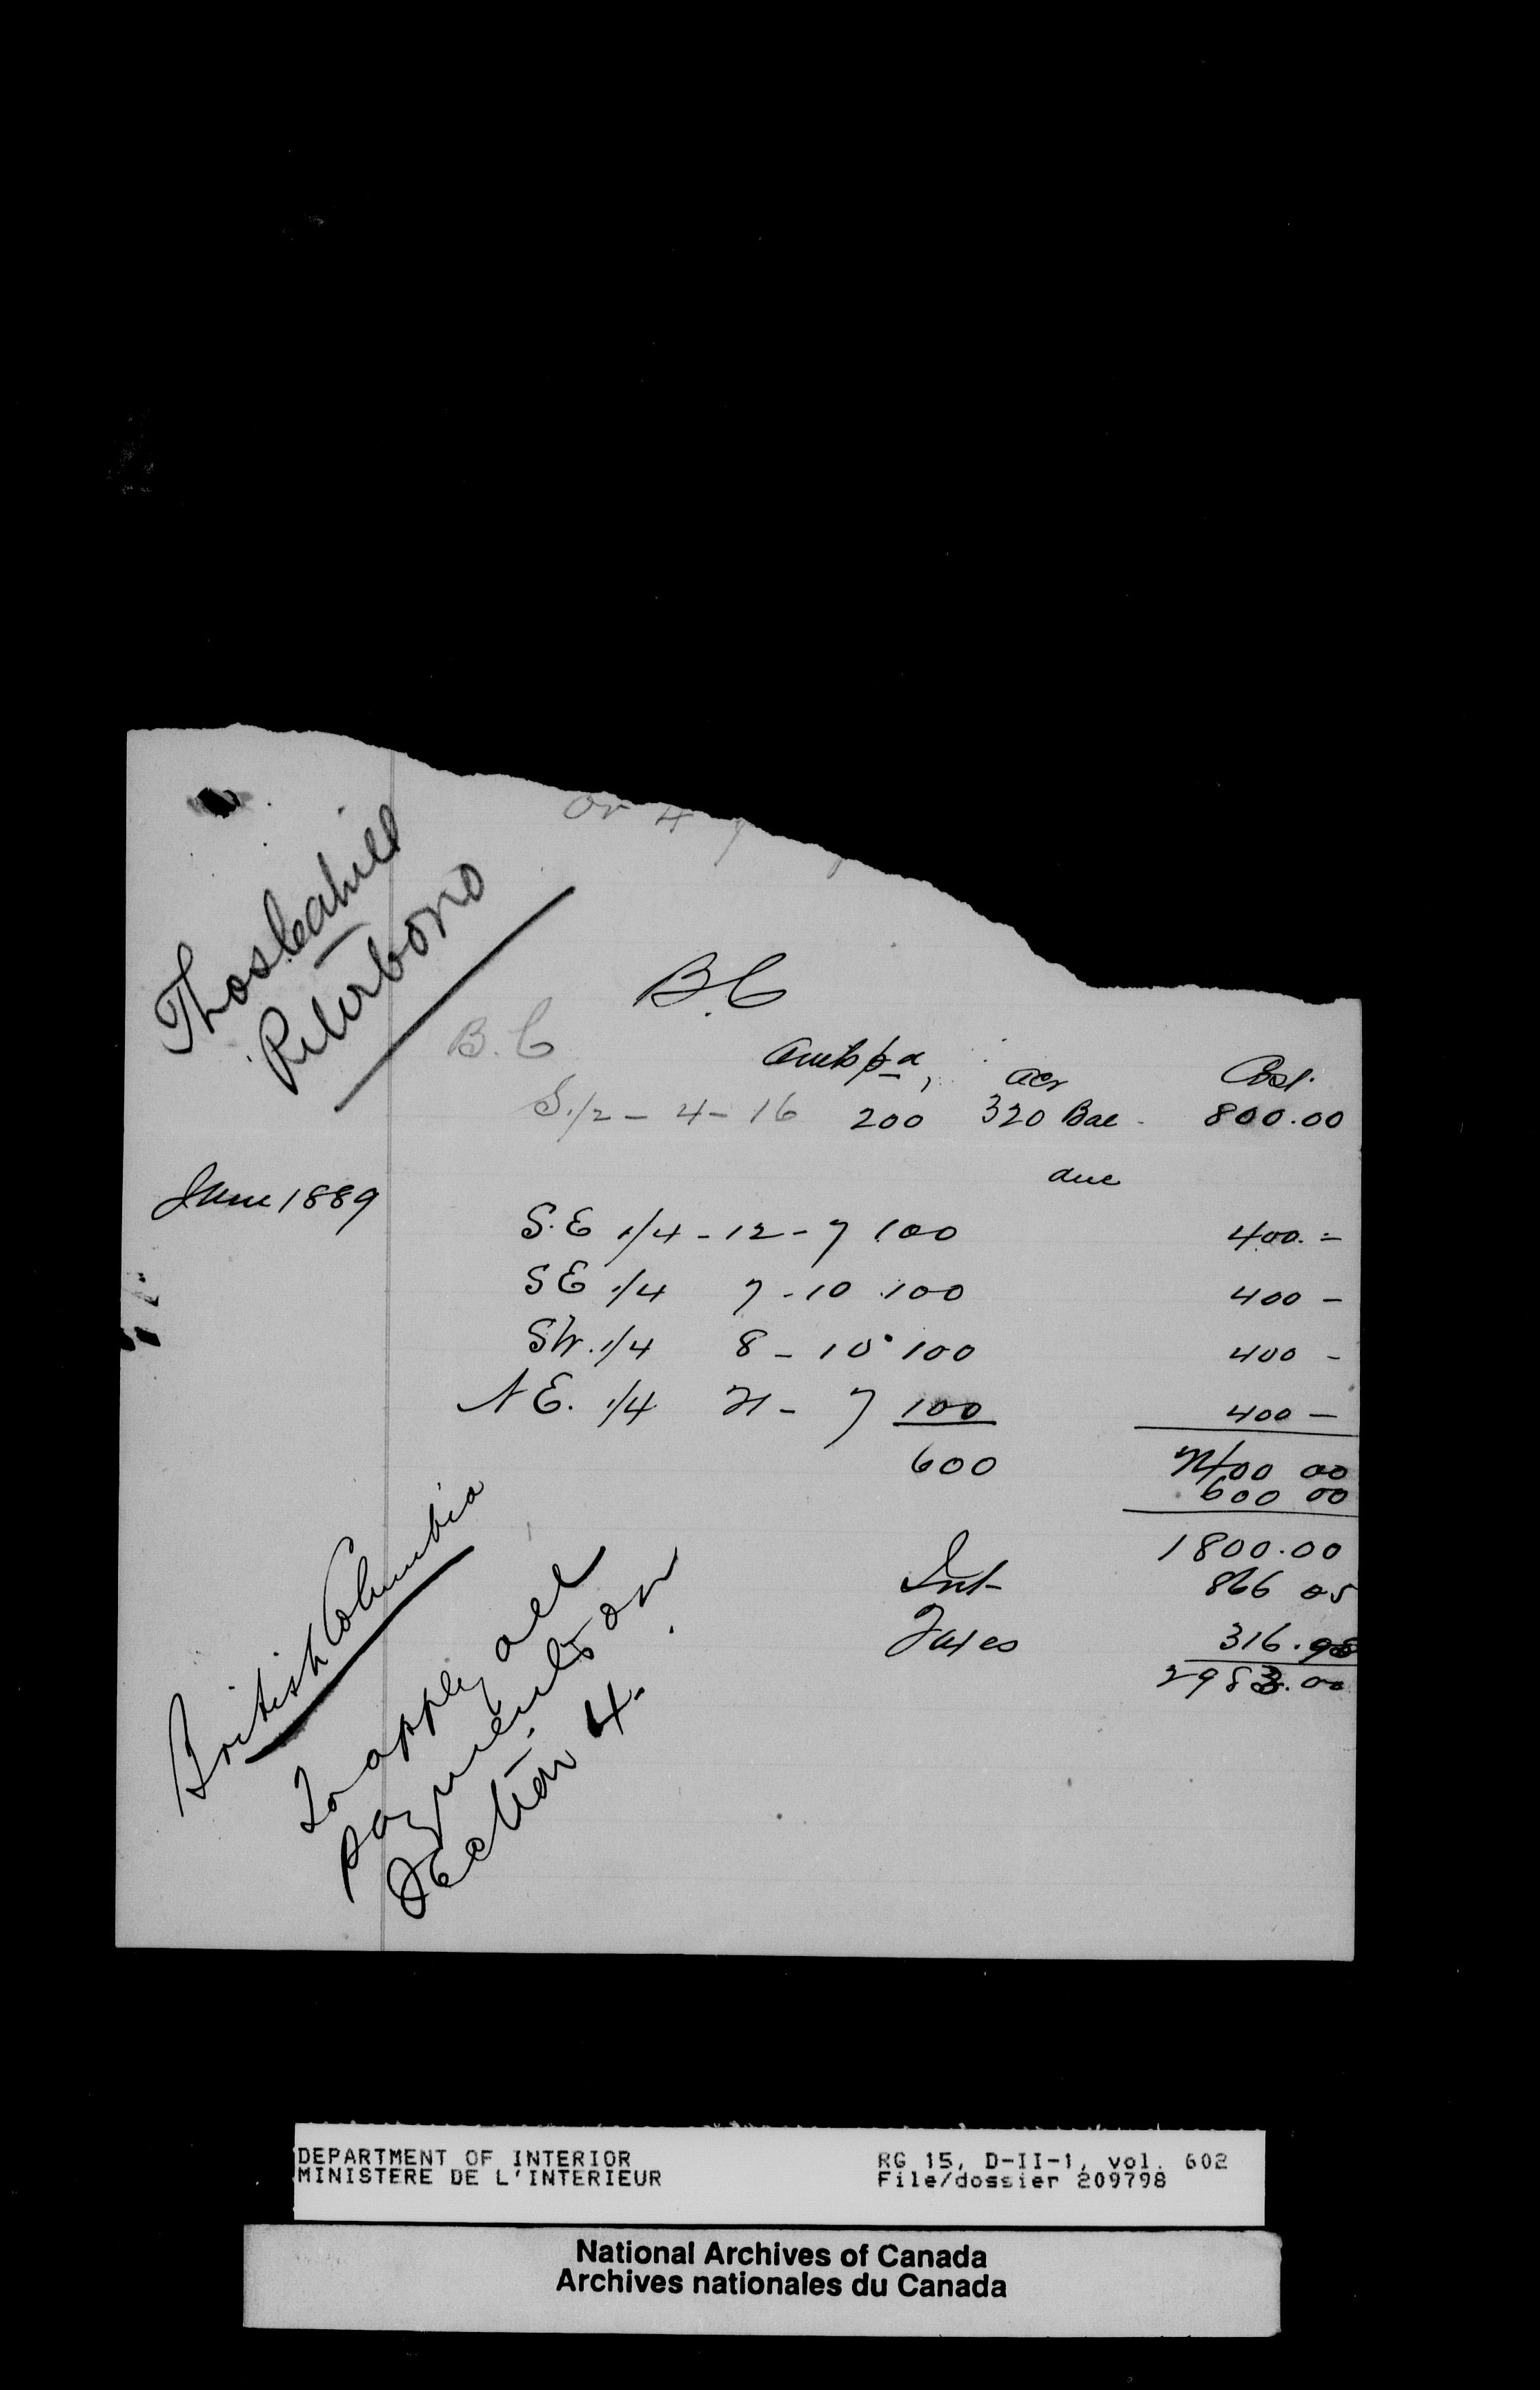 or 4
Thos Cahill
Peterboro
B.C
B.C
Amts pd, acr Cost.
S.1/2 - 4 - 16 200 320 Bal - 800.00
due
June 1889
S.E 1/4 - 12 - 7 100 400. =
SE 1/4 7 - 10 100 400 -
SW. 1/4 8 - 10 100 400 -
N E. 1/4 21 - 7 100 400 -
600 2400 00
600 00
1800.00
Int 866 05
Taxes 316.98
2983.00
British Columbia
To apply all
payments on
Section 4.
DEPARTMENT OF INTERIOR RG 15, D-II-1, vol. 602
MINISTERE DE L'INTERIEUR File/dossier 209798
National Archives of Canada
Archives nationales du Canada